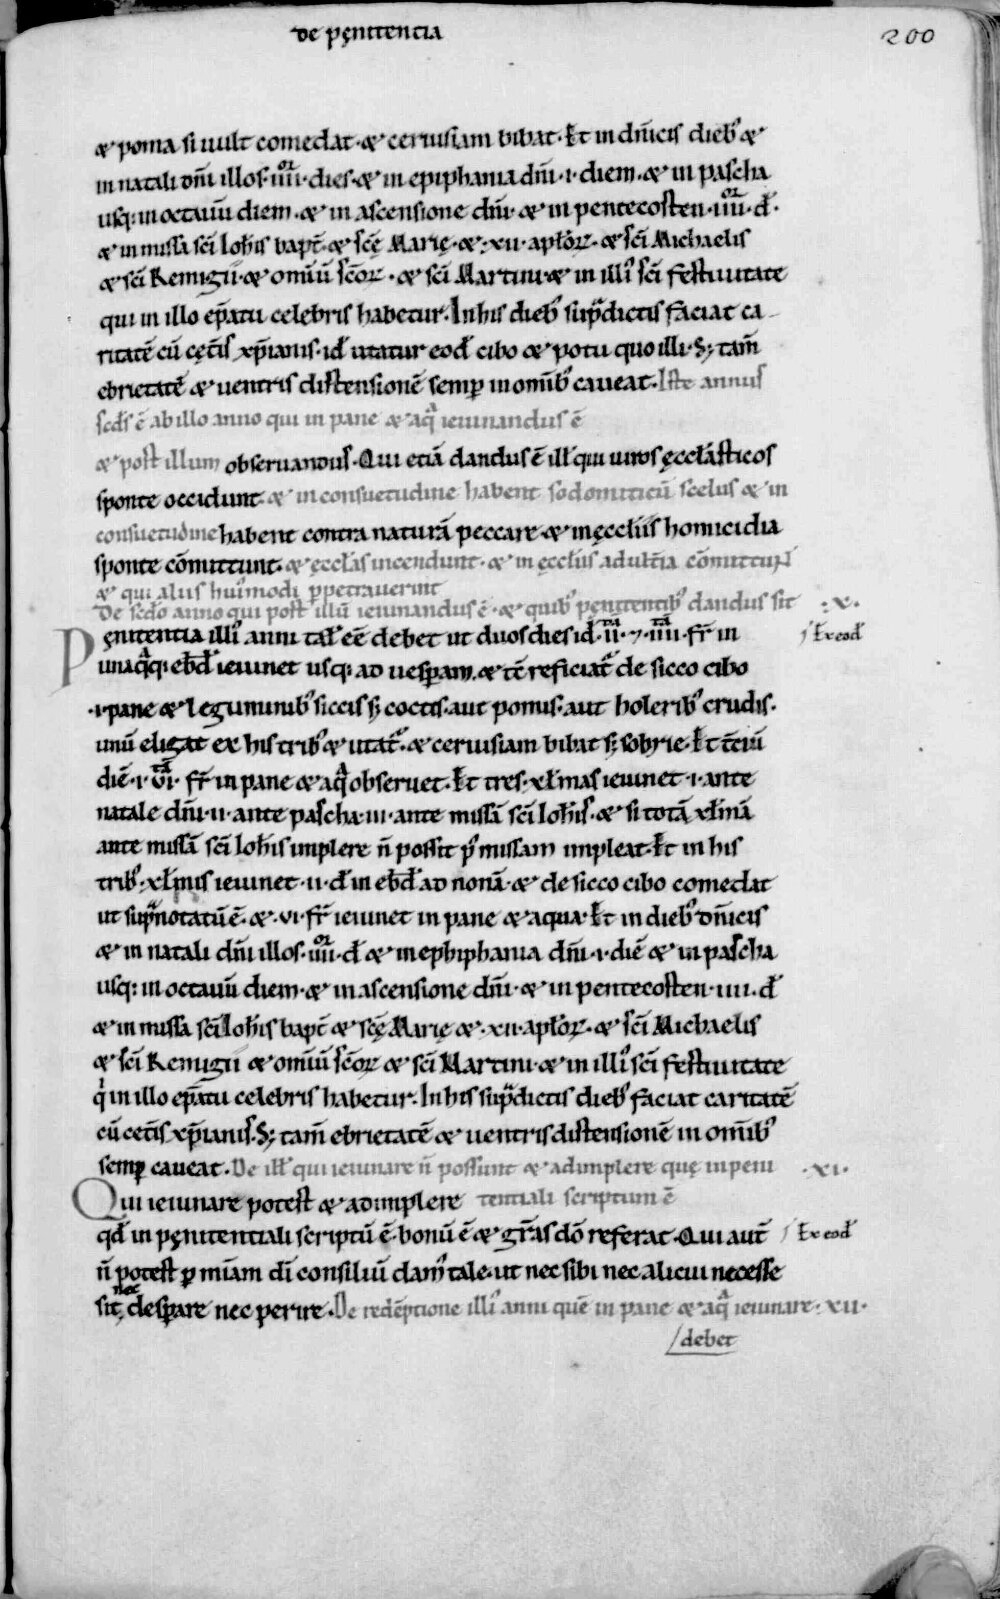 de pęnitencia
200
& poma si uult comedat · & ceruisiam bibat · Et in dn̄icis dieb; &
in natali dn̄i illos · iiii^or · dies · & in epiphania dn̄i · i · diem · & in pascha
usq; in octauū diem · & in ascensione dn̄i · & in pentecosten · iiii^or · d̄ ·
& in missa sc̄i Ioh̄is bapt̄ · & sc̄ę Marię · & · xii · apl̄oꝝ · & sc̄i Michaelis
& sc̄i Remigii · & omniū sc̄oꝝ · & sc̄i Martini · & in illi᾽ sc̄i festiuitate
qui in illo ep̄atu celebris habetur · In his dieb; sup̄dictis faciat ca-
ritatē cū cęt̄is xp̄ianis · id̄ utatur eod̄ cibo & potu quo illi · S; tam̄
ebrietatē & uentris distensionē semꝑ in omnib; caueat · Iste annus
sc̄d̄s ē ab illo anno qui in pane & aq^a ieiunandus ē
& post illum obseruandus · Qui etiā dandus ē ill̄ qui uiros ęccl̄asticos
sponte occidunt & in consuetudine habent sodomiticū scelus & in
consuetudine habent contra naturā peccare & in ęccl̄iis homicidia
sponte cōmittunt · & ęccl̄as incendunt · & in ęccl̄iis adult̄ia cōmittunt
& qui aliis hui᾽modi ꝑpetrauerint
De sc̄do anno qui post illū ieiunandus ē · & quib; pęnitentib; dandus sit · x ·
Pęnitentia illi᾽ anni tal̄ eē debet ut duos dies id̄ · ii^ā · ⁊ · iiii^tā · fr̄ in
Ex eod̄
unaq^aq; ebd̄ ieiunet usq; ad uesꝑam · & tē reficiat᾽ de sicco cibo
· i · pane & leguminib; siccis s; coctis · aut pomis · aut holerib; crudis ·
unū eligat ex his trib; & utat᾽ · & ceruisiam bibat s; sobrie · Et t̄ciū
diē · i · vi^tā · fr̄ in pane & aq^a obseruet · Et tres · xl̄mas ieiunet · i · ante
natale dn̄i · ii · ante pascha · iii · ante missā sc̄i Ioh̄is · & si totā xl̄mā
ante missā sc̄i Ioh̄is implere n̄ possit p᾽ missam impleat · Et in his
trib; xl̄mis ieiunet · ii · d̄ in ebd̄ ad nonā · & de sicco cibo comedat
ut sup^anotatū ē · & · vi · fr̄ ieiunet in pane & aqua · Et in dieb; dn̄icis
& in natali dn̄i illos · iiii^or · d̄ & in ephiphania dn̄i · i · diē & in pascha
usq; in octauū diem · & in ascensione dn̄i · & in pentecosten · iiii · d̄
& in missa sc̄i Ioh̄is bapt̄ & sc̄ę Marię & · xii · apl̄oꝝ · & sc̄i Michaelis
& sc̄i Remigii & omniū sc̄oꝝ & sc̄i Martini · & in illi᾽ sc̄i festiuitate
q^i in illo ep̄atu celebris habetur · In his sup^adictis dieb; faciat caritatē
cū cet̄is xp̄ianis · S; tam̄ ebrietatē & uentris distensionē in omnib;
semꝑ caueat · De ill̄ qui ieiunare n̄ possunt & adimplere quę in peni · xi ·
Qui ieiunare potest & adimplere tentiali scriptum ē
qd̄ in pęnitentiali scriptū ē · bonū ē & gr̄as dō referat · Qui aut̄ Ex eod̄
n̄ potest ꝑ miam dī consiliū dam᾽ tale · ut nec sibi nec alicui necesse
nec
sit, desꝑare nec perire · De redēptione illi᾽ anni quē in pane & aq^a ieiunare · xii ·
debet